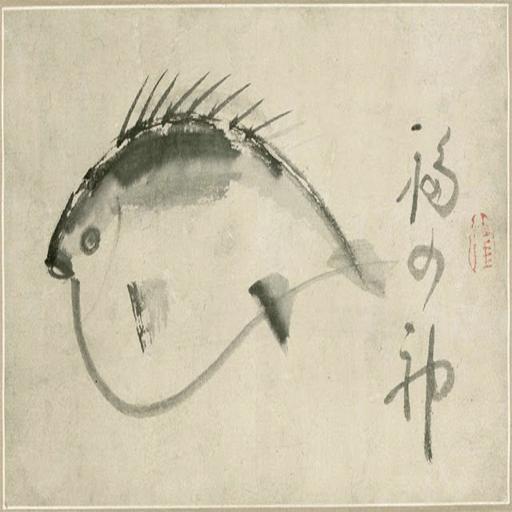 福の神